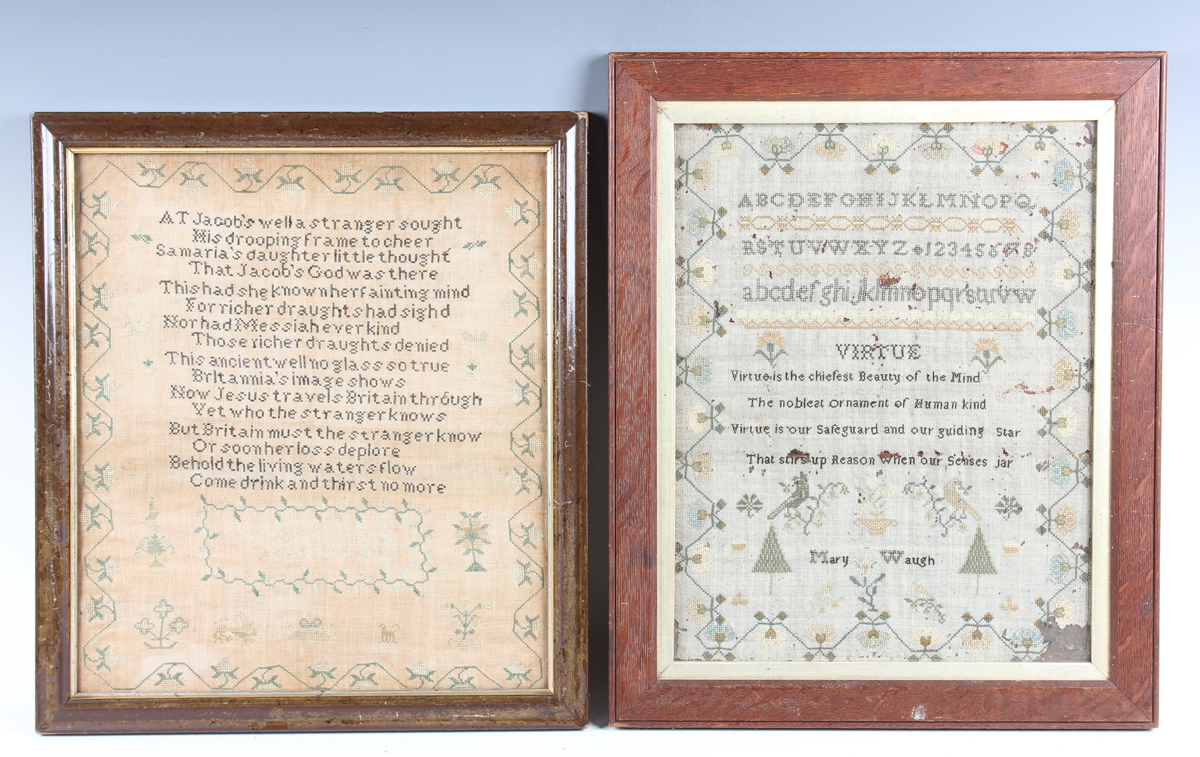 AT Jacob's well a stranger sought
His drooping frame to cheer
Samaria's daughter little thought
That Jacob's God was there
This had she known her fainting mind
For richer draughts had sigh'd
Nor had Messiah ever kind
Those richer draughts denied
This ancient well no glass so true
Britannia's image shows
Now Jesus travels Britain through
Yet who the stranger knows
But Britain must the stranger know
Or soon her loss deplore
Behold the living waters flow
Come drink and thirst no more
ABCDEFGHIJKLMNOPQ
RSTUVWXYZ 12345678
abcdefghijklmnopqrstuvw
VIRTUE
Virtue is the chiefest Beauty of the Mind
The noblest ornament of Human kind
Virtue is our Safeguard and our guiding Star
That stirs up Reason when our Senses jar
Mary Waugh